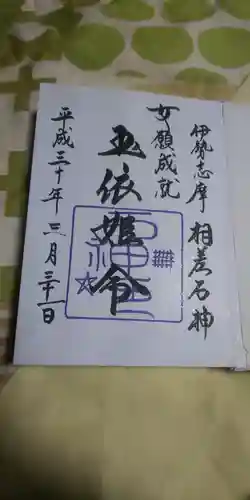 伊勢志摩 相差石神
女願成就
玉依姫命
平成三十年 三月三十一日
石神